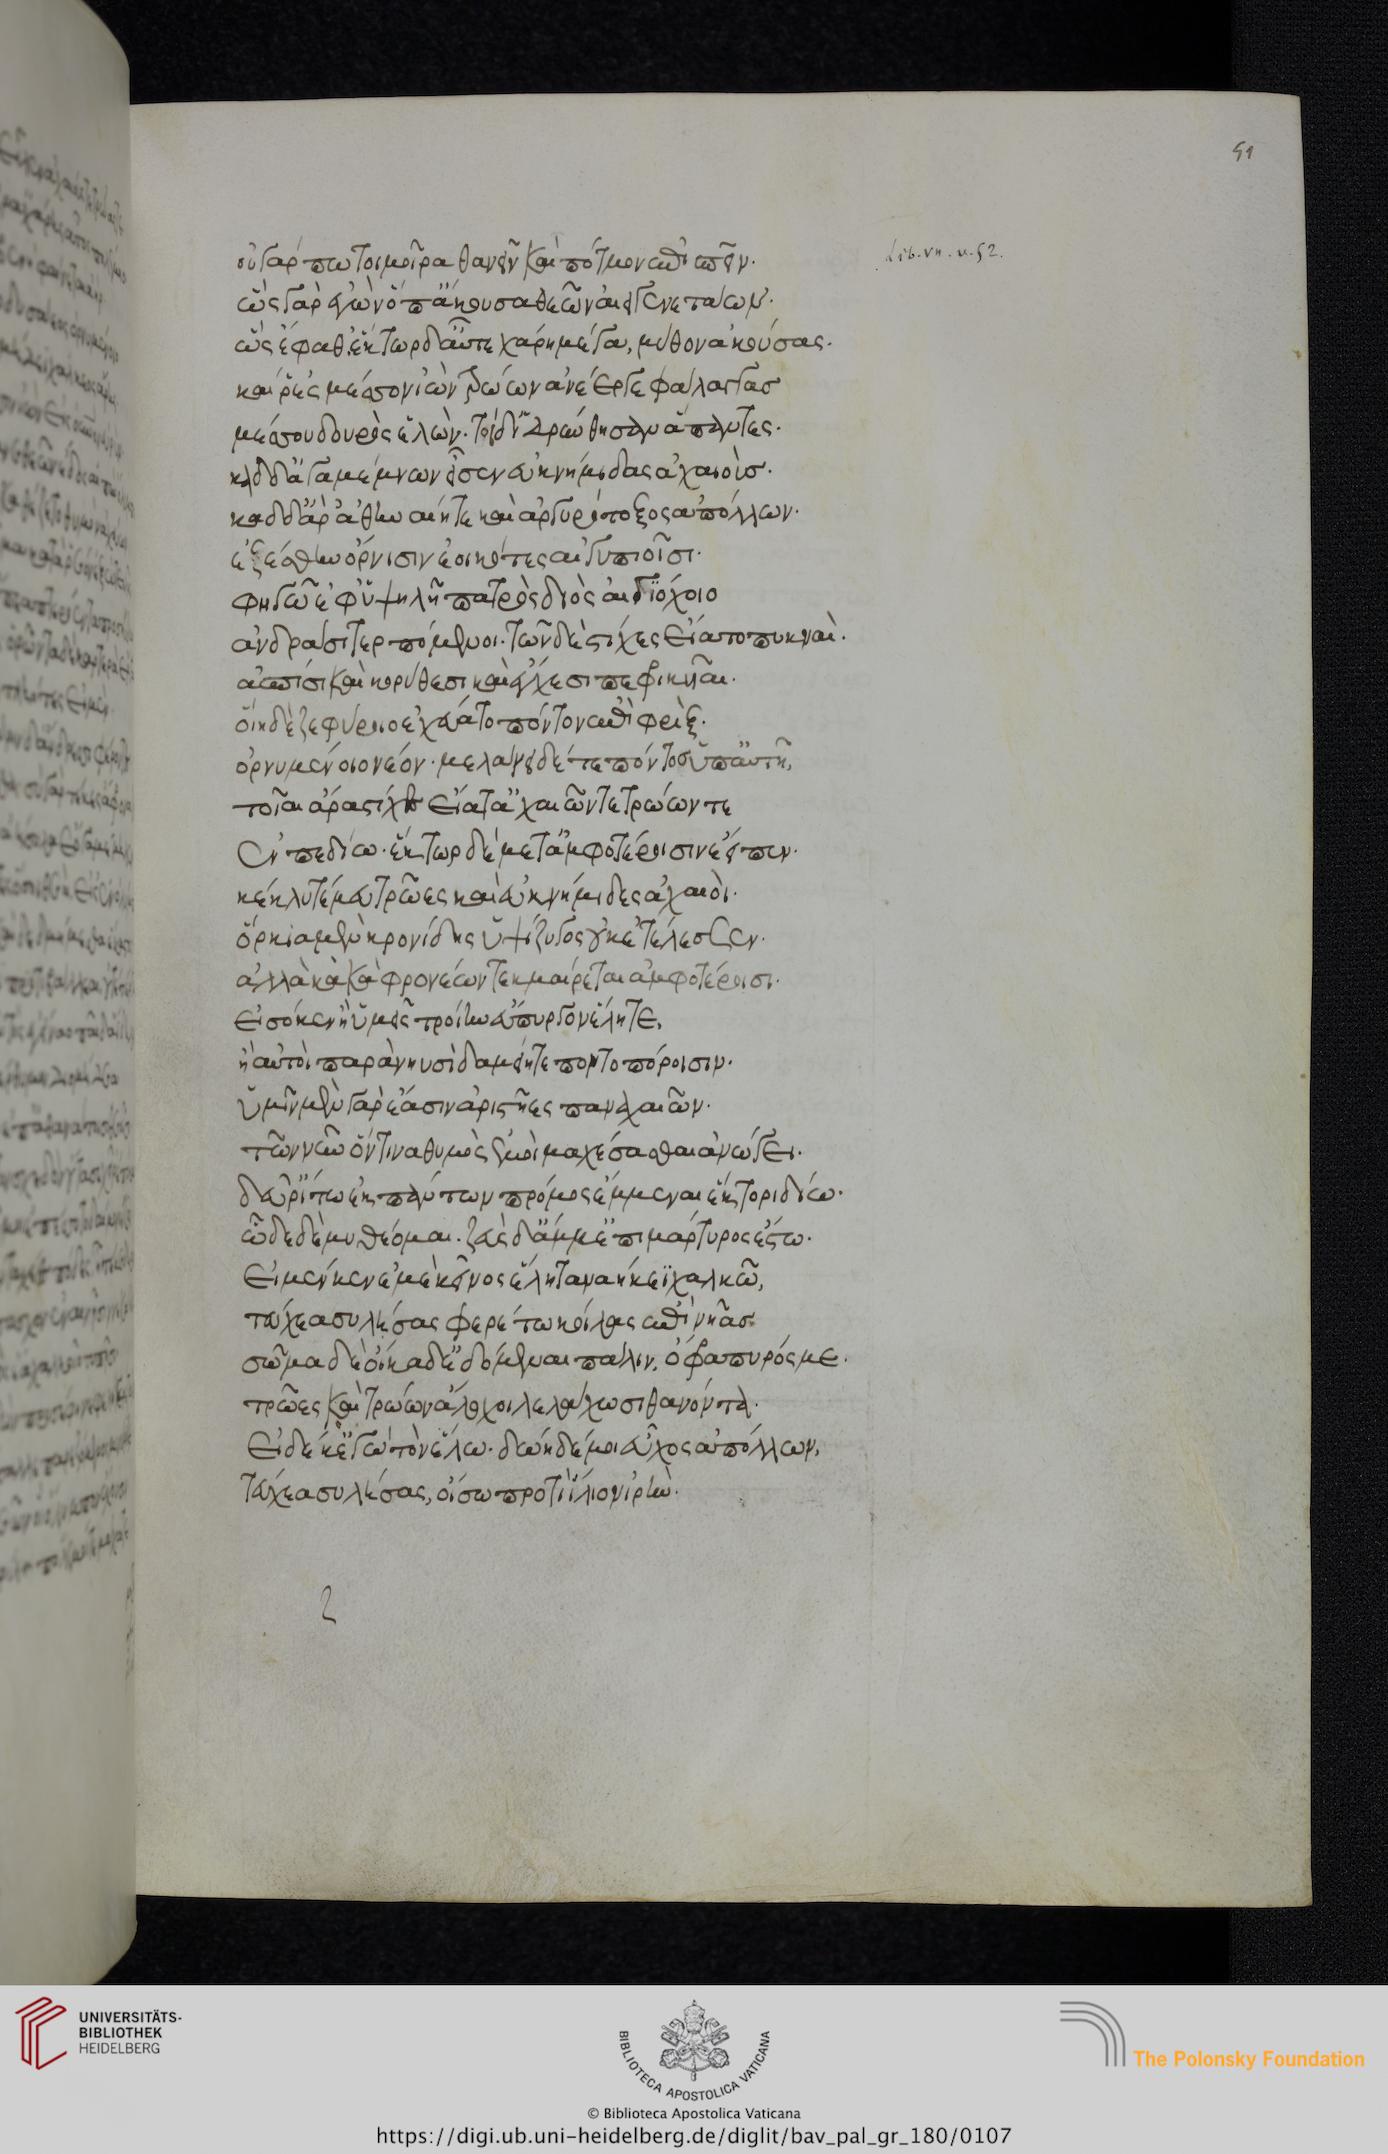 51
Lib. VII. v. 52.
οὐ γάρ πω τοι μοῖρα θανεῖν καὶ πότμον ἐπισπεῖν·
ὣς γὰρ ἐγὼν ὄπ' ἄκουσα θεῶν αἰειγενετάων·
ὣς ἔφαθ', ἕκτωρ δ' αὖτε χάρη μέγα, μῦθον ἀκούσας·
καί ῥ' ἐς μέσσον ἰὼν τρώων ἀνέεργε φάλαγγας
μέσσου δουρὸς ἑλών· τοὶ δ' ἱδρύνθησαν ἅπαντες·
καδδ' ἀγαμέμνων εἷσεν ἐυκνήμιδας ἀχαιοὺς·
καδδ' ἄρ' ἀθηναίη τε καὶ ἀργυρότοξος ἀπόλλων·
ἑζέσθην ὄρνισιν ἐοικότες αἰγυπιοῖσι·
φηγῷ ἐφ' ὑψηλῇ πατρὸς διὸς αἰγιόχοιο
ἀνδράσι τερπόμενοι· τῶν δὲ στίχες εἵατο πυκναὶ·
ἀσπίσι καὶ κορύθεσι καὶ ἔγχεσι πεφρικυῖαι·
οἵη δὲ ζεφύροιο ἐχεύατο πόντον ἐπὶ φρὶξ·
ὀρνυμένοιο νέον· μελάνει δέ τε πόντος ὑπ' αὐτῆς,
τοῖαι ἄρα στίχες εἵατ' ἀχαιῶν τε τρώων τε
ἐν πεδίω· ἕκτωρ δὲ μετ' ἀμφοτέροισιν ἔειπεν·
κέκλυτέ μευ τρῶες καὶ ἐυκνήμιδες ἀχαιοὶ·
ὅρκια μὲν κρονίδης ὑψίζυγος οὐκ ἐτέλεσσεν·
ἀλλὰ κακὰ φρονέων τεκμαίρεται ἀμφοτέροισι·
εἰσόκεν ἢ ὑμεῖς τροίην εὔπυργον ἕλητε,
ἢ αὐτοὶ παρὰ νηυσὶ δαμείητε ποντοπόροισιν·
ὑμῖν μὲν γὰρ ἔασιν ἀριστῆες παναχαιῶν·
τῶν νῦν ὅντινα θυμὸς ἐμοὶ μαχέσασθαι ἀνώγει·
δεῦρ' ἴτω ἐκ πάντων πρόμος ἔμμεναι ἕκτορι δίω·
ὧδε δὲ μυθέομαι· ζεὺς δ' ἄμμ' ἐπιμάρτυρος ἔστω·
εἰ μέν κεν ἐμὲ κεῖνος ἕλη ταναήκεϊ χαλκῶ,
τεύχεα συλήσας φερέτω κοίλας ἐπὶ νῆας
σῶμα δὲ οἴκαδ' ἐμὸν δόμεναι πάλιν, ὄφρα πυρός με·
τρῶες καὶ τρώων ἄλοχοι λελάχωσι θανόντα·
εἰ δέ κ' ἐγὼ τὸν ἕλω· δώη δέ μοι εὖχος ἀπόλλων,
τεύχεα συλήσας, οἴσω προτὶ ἴλιον ἱρὴν·
UNIVERSITÄTS-
BIBLIOTHEK
HEIDELBERG
BIBLIOTECA APOSTOLICA VATICANA
The Polonsky Foundation
© Biblioteca Apostolica Vaticana
https://digi.ub.uni-heidelberg.de/diglit/bav_pal_gr_180/0107